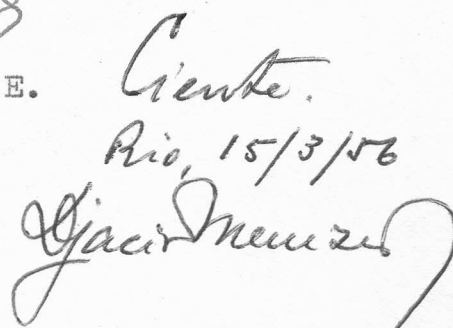 E. Ciente.
Rio, 15/3/56
Djacir Menezes